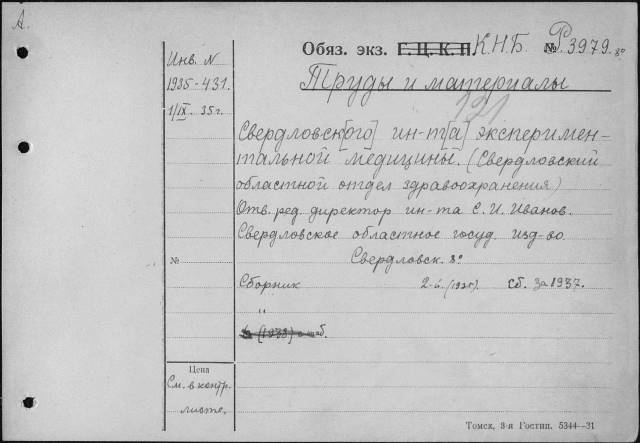 А.
Обяз. экз. Г.Ц.К.П. К.Н.Б. № Р3979. 8º
Инв. N
1935-431.
1/IX. 35 г.
Труды и материалы
121
Свердловск[ого] ин-т[а] эксперимен-
тальной медицины. (Свердловский
областной отдел здравоохранения)
Отв. ред. директор ин-та С. И. Иванов.
Свердловское областное госуд. изд-во.
№ Свердловск. 8º
Сборник 2-й. (1935). Сб. за 1937.
"
(1938)
Цена
См. в контр.
листе.
Томск, 3-я Гостип. 5344—31